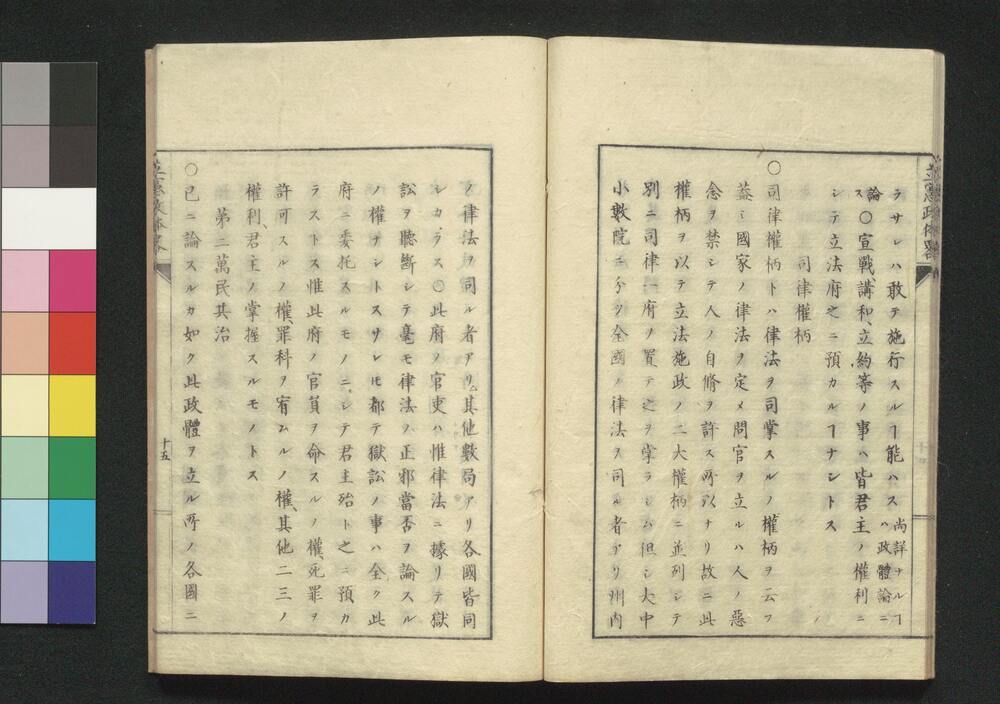 立憲政体略
ラサレハ敢テ施行スルヿ能ハス尚詳ナルヿハ政體論ニ
論ス〇宣戰、講和、立約等ノ事ハ皆君主ノ權利ニ
シテ立法府之ニ預カルヿナシトス
司律權柄
〇司律權柄トハ律法ヲ司掌スルノ權柄ヲ云フ
蓋シ國家ノ律法ヲ定メ問官ヲ立ルハ人ノ惡
念ヲ禁シテ人ノ自脩ヲ許ス所以ナリ故ニ此
權柄ヲ以テ立法施政ノ二大權柄ニ並列シテ
別ニ司律ノ一府ノ置テ之ヲ掌ラシム但シ大中
小數院ニ分ツ全國ノ律法ヲ司ル者アリ州内
ノ律法ヲ司ル者アリ其他數局アリ各國皆同
シカラス〇此府ノ官吏ハ惟律法ニ據リテ獄
訟ヲ聽斷シテ毫モ律法ノ正邪當否ヲ論スル
ノ權ナシトスサレ𪜈都テ獄訟ノ事ハ全ク此
府ニ委托スルモノニシテ君主殆ト之ニ預カ
ラストス惟此府ノ官員ヲ命スルノ權、死罪ヲ
許可スルノ權、罪科ヲ宥ムルノ權、其他二三ノ
權利、君主ノ掌握スルモノトス
第二萬民共治
〇已ニ論スルカ如ク此政體ヲ立ル所ノ各國ニ
十五